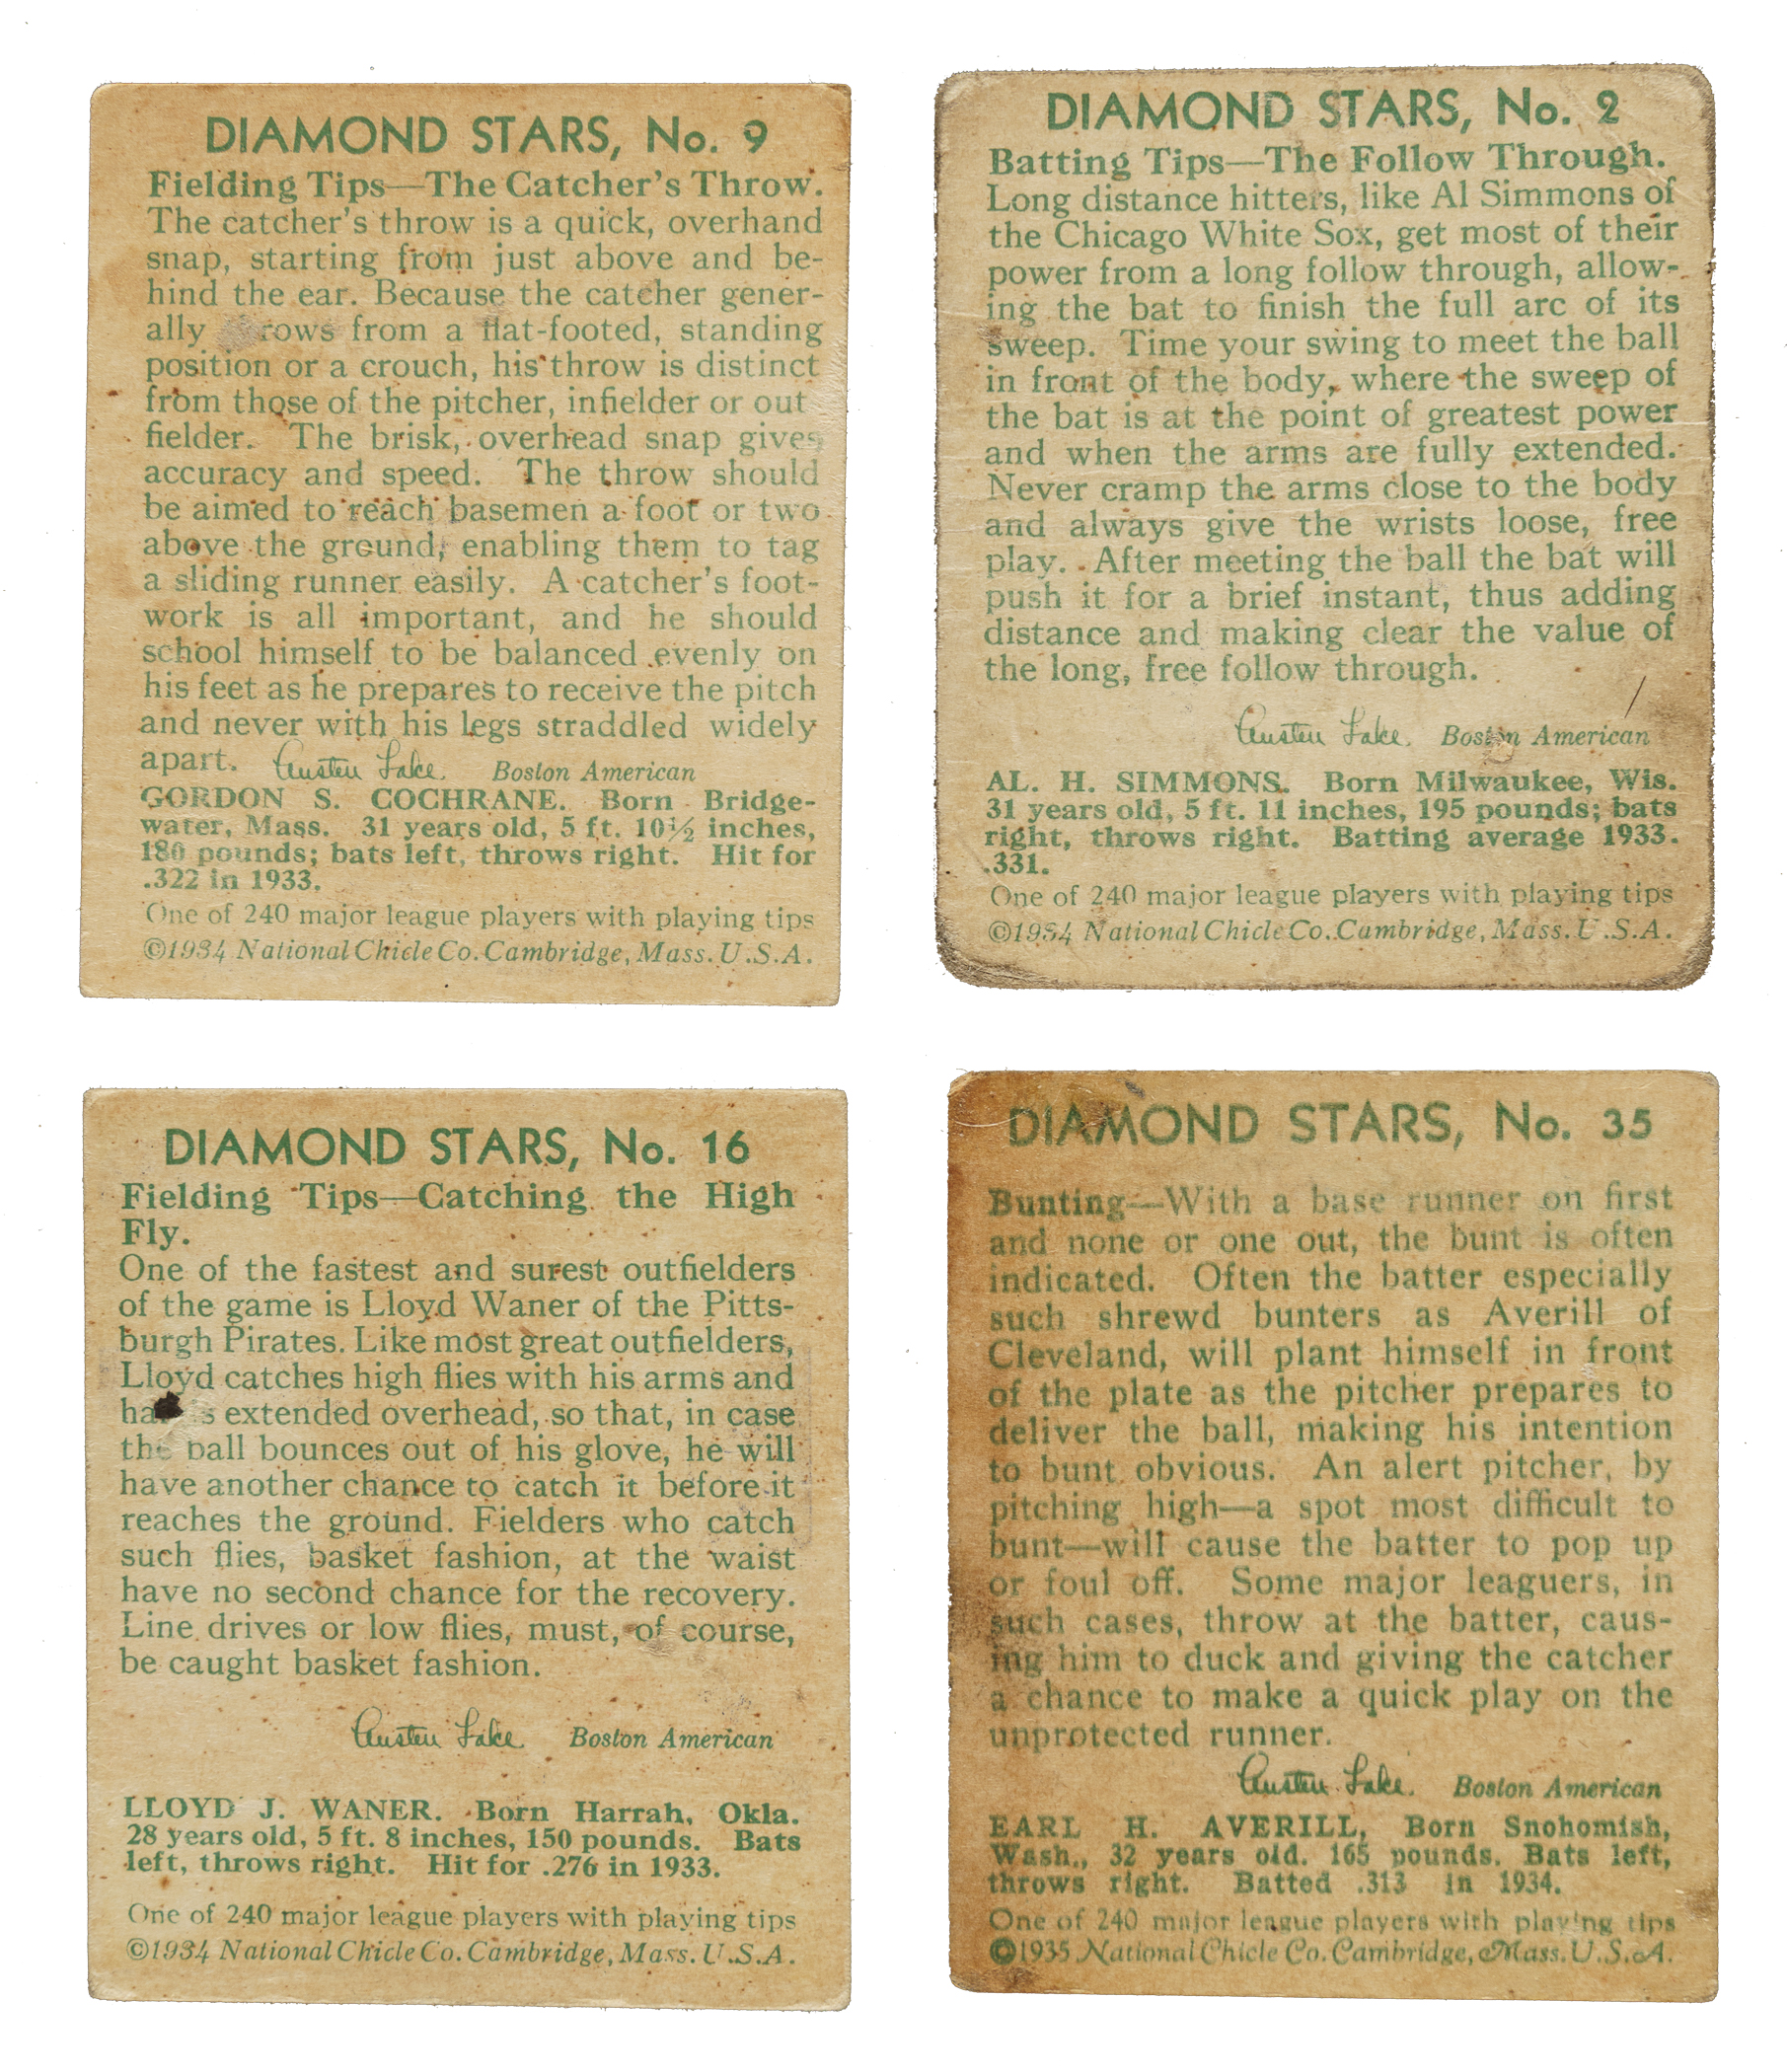 DIAMOND STARS, No. 9
Fielding Tips—The Catcher's Throw.
The catcher's throw is a quick, overhand
snap, starting from just above and be-
hind the ear. Because the catcher gener-
ally rows from a flat-footed, standing
position or a crouch, his throw is distinct
from those of the pitcher, infielder or out
fielder. The brisk, overhead snap gives
accuracy and speed. The throw should
be aimed to reach basemen a foot or two
above the ground, enabling them to tag
a sliding runner easily. A catcher's foot-
work is all important, and he should
school himself to be balanced evenly on
his feet as he prepares to receive the pitch
and never with his legs straddled widely
apart. Austen Lake Boston American
GORDON S. COCHRANE. Born Bridge-
water, Mass. 31 years old, 5 ft. 10½ inches,
180 pounds; bats left, throws right. Hit for
.322 in 1933.
One of 240 major league players with playing tips
©1934 National Chicle Co. Cambridge, Mass. U.S.A.
DIAMOND STARS, No. 2
Batting Tips—The Follow Through.
Long distance hitters, like Al Simmons of
the Chicago White Sox, get most of their
power from a long follow through, allow-
ing the bat to finish the full arc of its
sweep. Time your swing to meet the ball
in front of the body, where the sweep of
the bat is at the point of greatest power
and when the arms are fully extended.
Never cramp the arms close to the body
and always give the wrists loose, free
play. After meeting the ball the bat will
push it for a brief instant, thus adding
distance and making clear the value of
the long, free follow through.
Austen Lake. Boston American
AL. H. SIMMONS. Born Milwaukee, Wis.
31 years old, 5 ft. 11 inches, 195 pounds; bats
right, throws right. Batting average 1933.
.331.
One of 240 major league players with playing tips
©1934 National Chicle Co. Cambridge, Mass. U.S.A.
DIAMOND STARS, No. 16
Fielding Tips—Catching the High
Fly.
One of the fastest and surest outfielders
of the game is Lloyd Waner of the Pitts-
burgh Pirates. Like most great outfielders,
Lloyd catches high flies with his arms and
ha s extended overhead, so that, in case
the ball bounces out of his glove, he will
have another chance to catch it before it
reaches the ground. Fielders who catch
such flies, basket fashion, at the waist
have no second chance for the recovery.
Line drives or low flies, must, of course,
be caught basket fashion.
Austen Lake Boston American
LLOYD J. WANER. Born Harrah, Okla.
28 years old, 5 ft. 8 inches, 150 pounds. Bats
left, throws right. Hit for .276 in 1933.
One of 240 major league players with playing tips
©1934 National Chicle Co. Cambridge, Mass. U.S.A.
DIAMOND STARS, No. 35
Bunting—With a base runner on first
and none or one out, the bunt is often
indicated. Often the batter especially
such shrewd bunters as Averill of
Cleveland, will plant himself in front
of the plate as the pitcher prepares to
deliver the ball, making his intention
to bunt obvious. An alert pitcher, by
pitching high—a spot most difficult to
bunt—will cause the batter to pop up
or foul off. Some major leaguers, in
such cases, throw at the batter, caus-
ing him to duck and giving the catcher
a chance to make a quick play on the
unprotected runner.
Austen Lake. Boston American
EARL H. AVERILL, Born Snohomish,
Wash., 32 years old. 165 pounds. Bats left,
throws right. Batted .313 in 1934.
One of 240 major league players with playing tips
©1935 National Chicle Co. Cambridge, Mass. U.S.A.